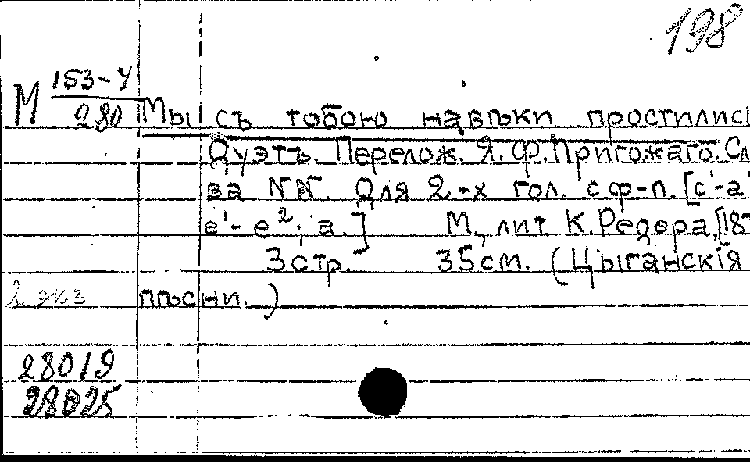 198
М 153-4
280 Мы съ тобою навѣки простились
Дуэтъ. Перелож. Я. Ф. Пригожаго. Сл
ва NN. Для 2-х гол. с ф-п. [c'-a'
e'-e²; a.] М., лит. К. Редера, [18
3 стр. 35 см. (Цыганскія
2 экз пѣсни.)
28019
28025